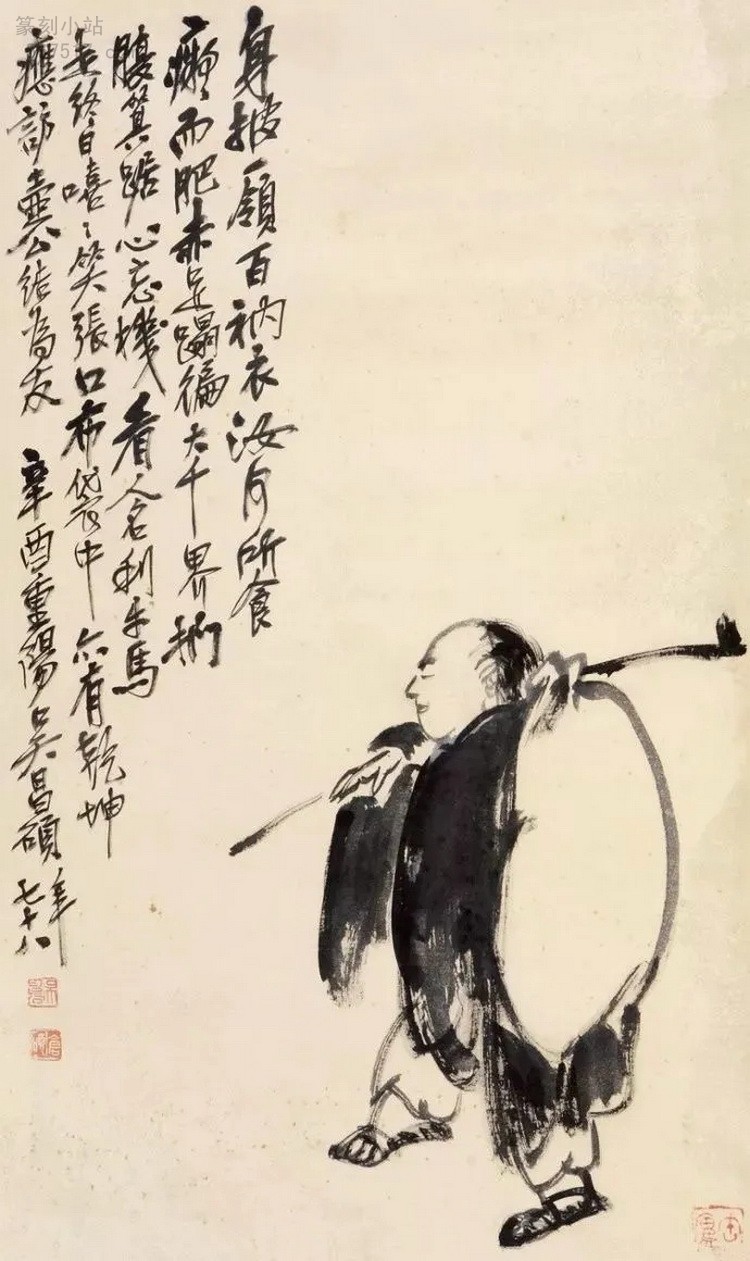 身披一領百衲衣汝何所食
而肥赤足蹋徧大千界捫
腹箕踞心忘機看人名利牛馬
走終日嘻〻笑張口布袋中亦有乾坤
應訪壺公結為友 辛酉重陽吳昌碩年
七十八
篆刻小站